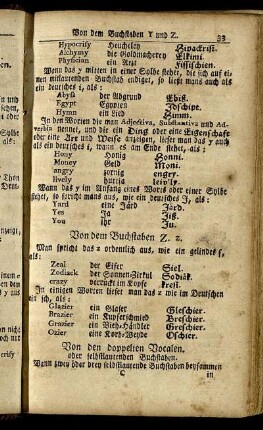 Von dem Buchstaben Y und Z. 33
Hypocrisy Heucheley
Alchymy die Goldmacherey Elkimi.
Physician ein Artzt Fissischien.
Wenn das y mitten in einer Sylbe stehet, die sich auf ei-
nen mitlautenden Buchstab endiget, so liest mans auch als
ein deutsches i, als:
Abyss der Abgrund Ebiß.
Egypt Egypten Idschipt.
Hymn ein Lied Himm.
In den Worten die man Adjectiva, Substantiva und Ad-
verbia nennet, und die ein Ding oder eine Eigenschaft
oder eine Art und Weise anzeigen, lieset man das y auch
als ein deutsches i, wann es am Ende stehet, als:
Hony Honig Honni.
Money Geld Moni.
angry zornig engry.
lively hurtig leivly.
Wann das y im Anfang eines Worts oder einer Sylbe
stehet, so spricht mans aus, wie ein deutsches J, als:
Yard eine Jard Järd.
Yes Ja Jiß.
You ihr Ju.
Von dem Buchstaben Z. z.
Man spricht das z ordentlich aus, wie ein gelindes s,
als:
Zeal der Eifer Siel.
Zodiack der Sonnen-Zirkul Sodiäk.
crazy verrückt im Kopfe kresi.
In einigen Worten lieset man das z wie im Deutschen
ein sch, als:
Glazier ein Glaser Gleschier.
Brazier ein Kupferschmied Breschier.
Grazier ein Vieh-Händler Greschier.
Ozier eine Korb-Weyde Oschier.
Von den doppelten Vocalen,
oder selbstlautenden Buchstaben.
Wann zwey oder drey selbstlautende Buchstaben beysammen
C in